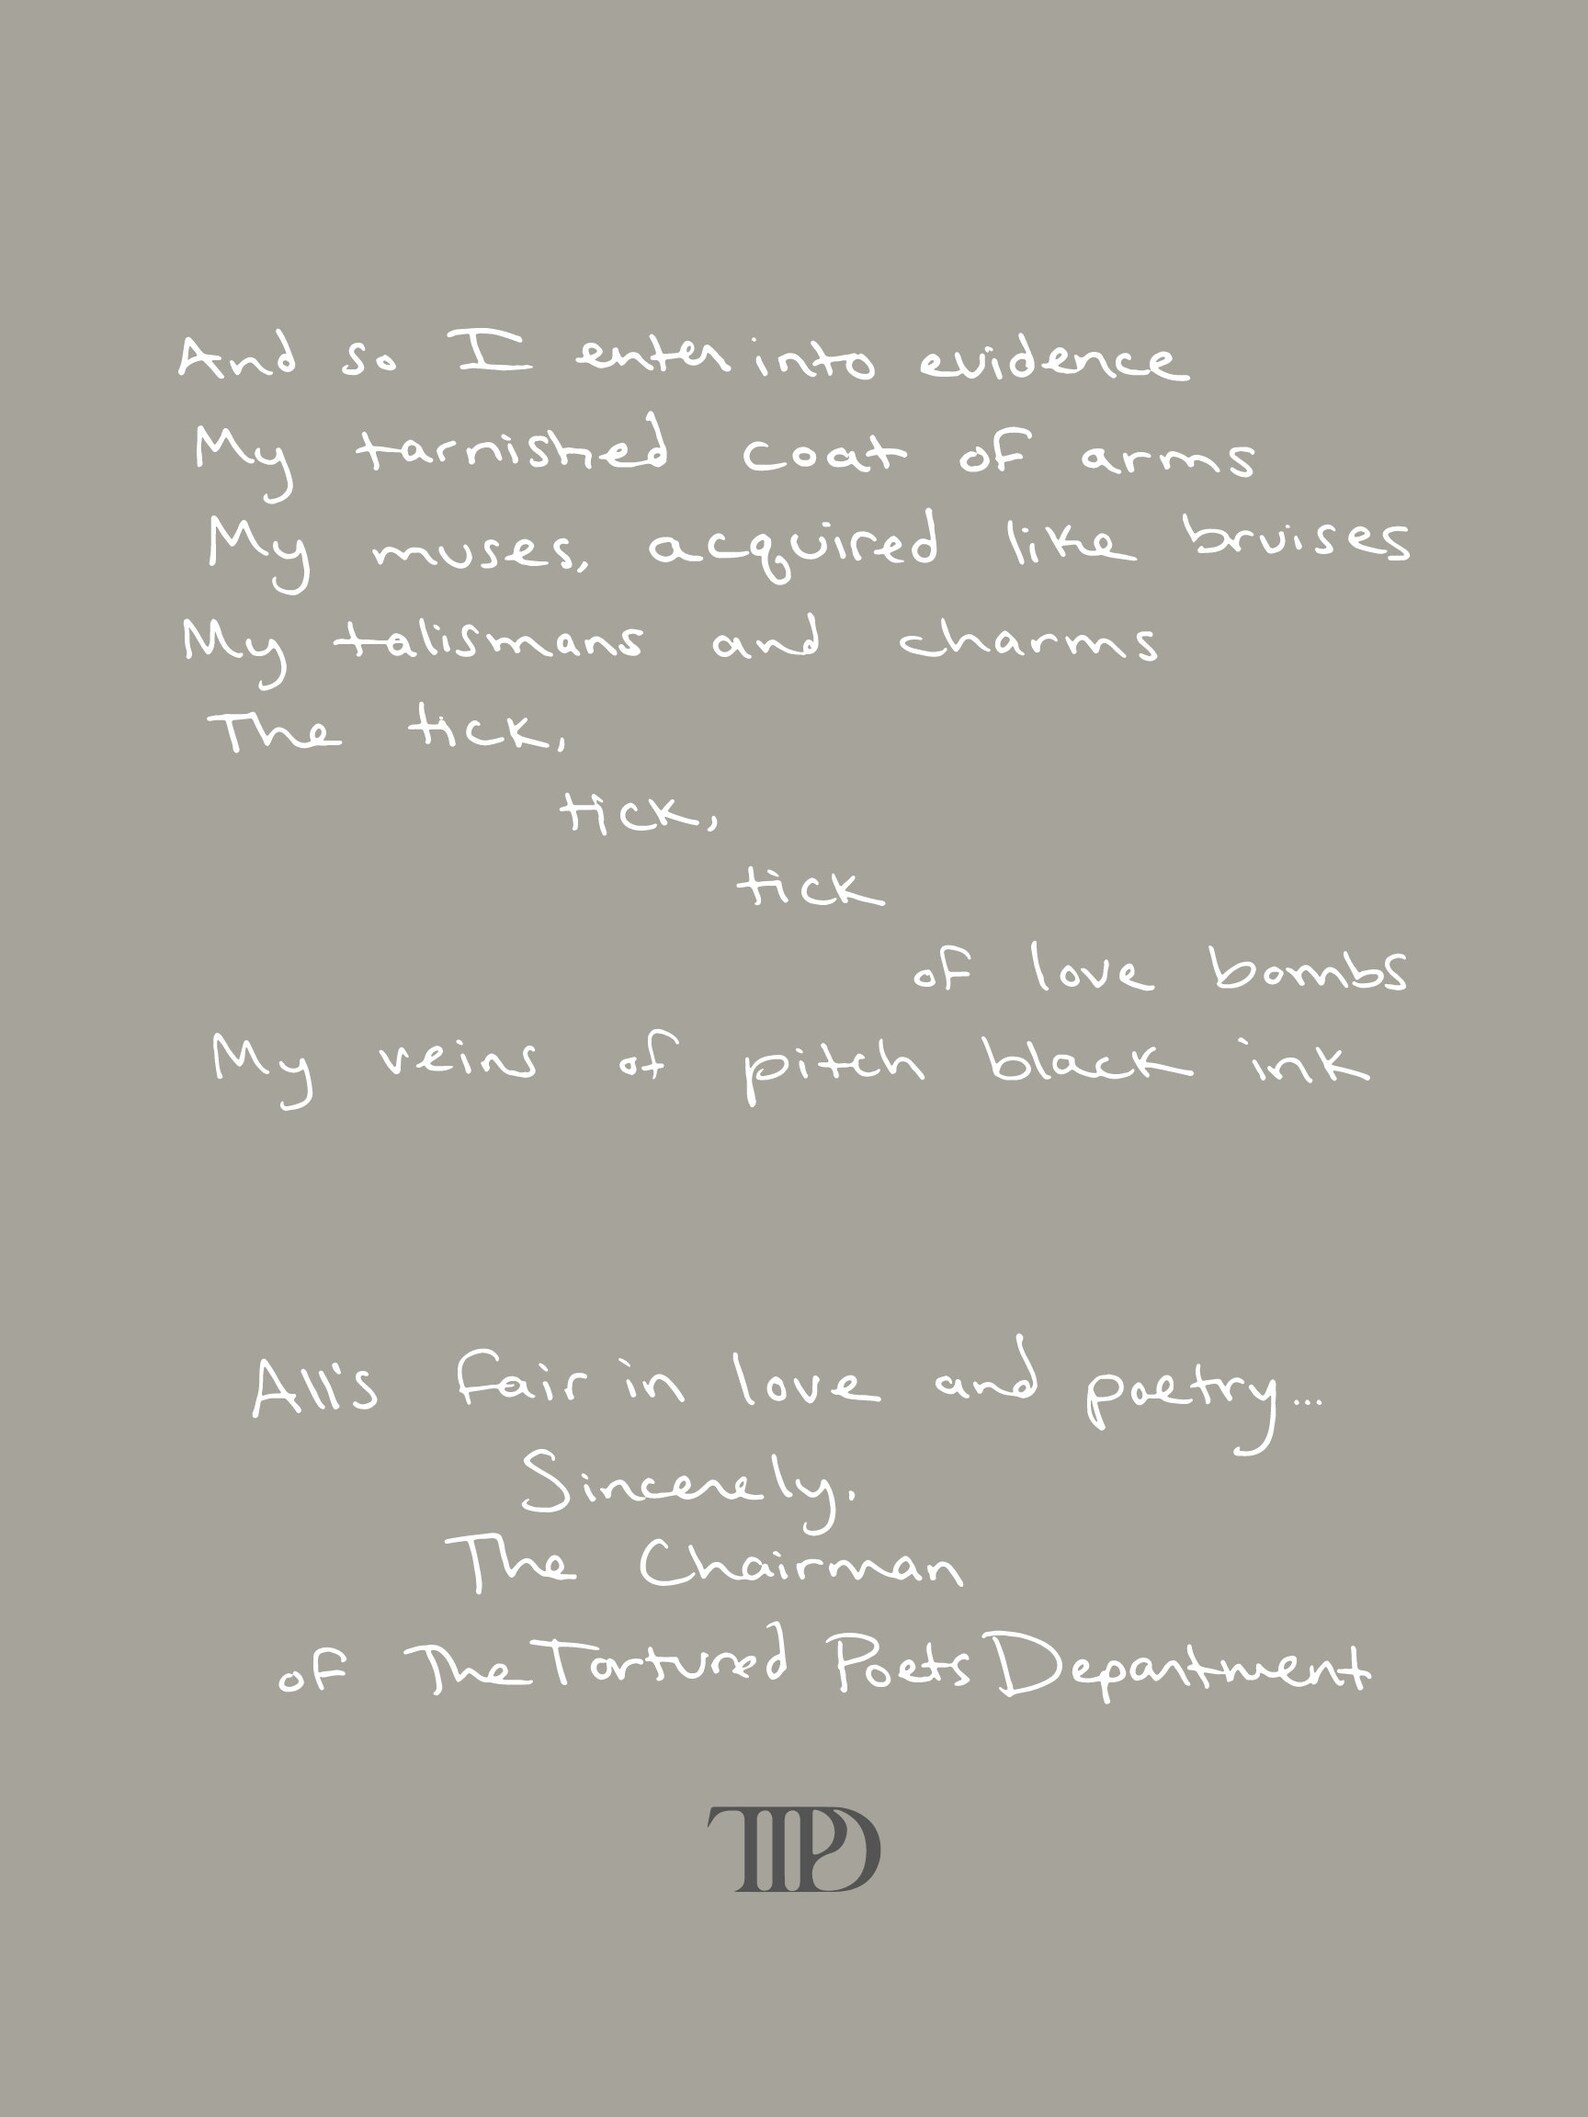 And so I enter into evidence
My tarnished coat of arms
My muses, acquired like bruises
My talismans and charms
The tick,
tick,
tick
of love bombs
My veins of pitch black ink
All's fair in love and poetry...
Sincerely,
The Chairman
of The Tortured Poets Department
TTPD